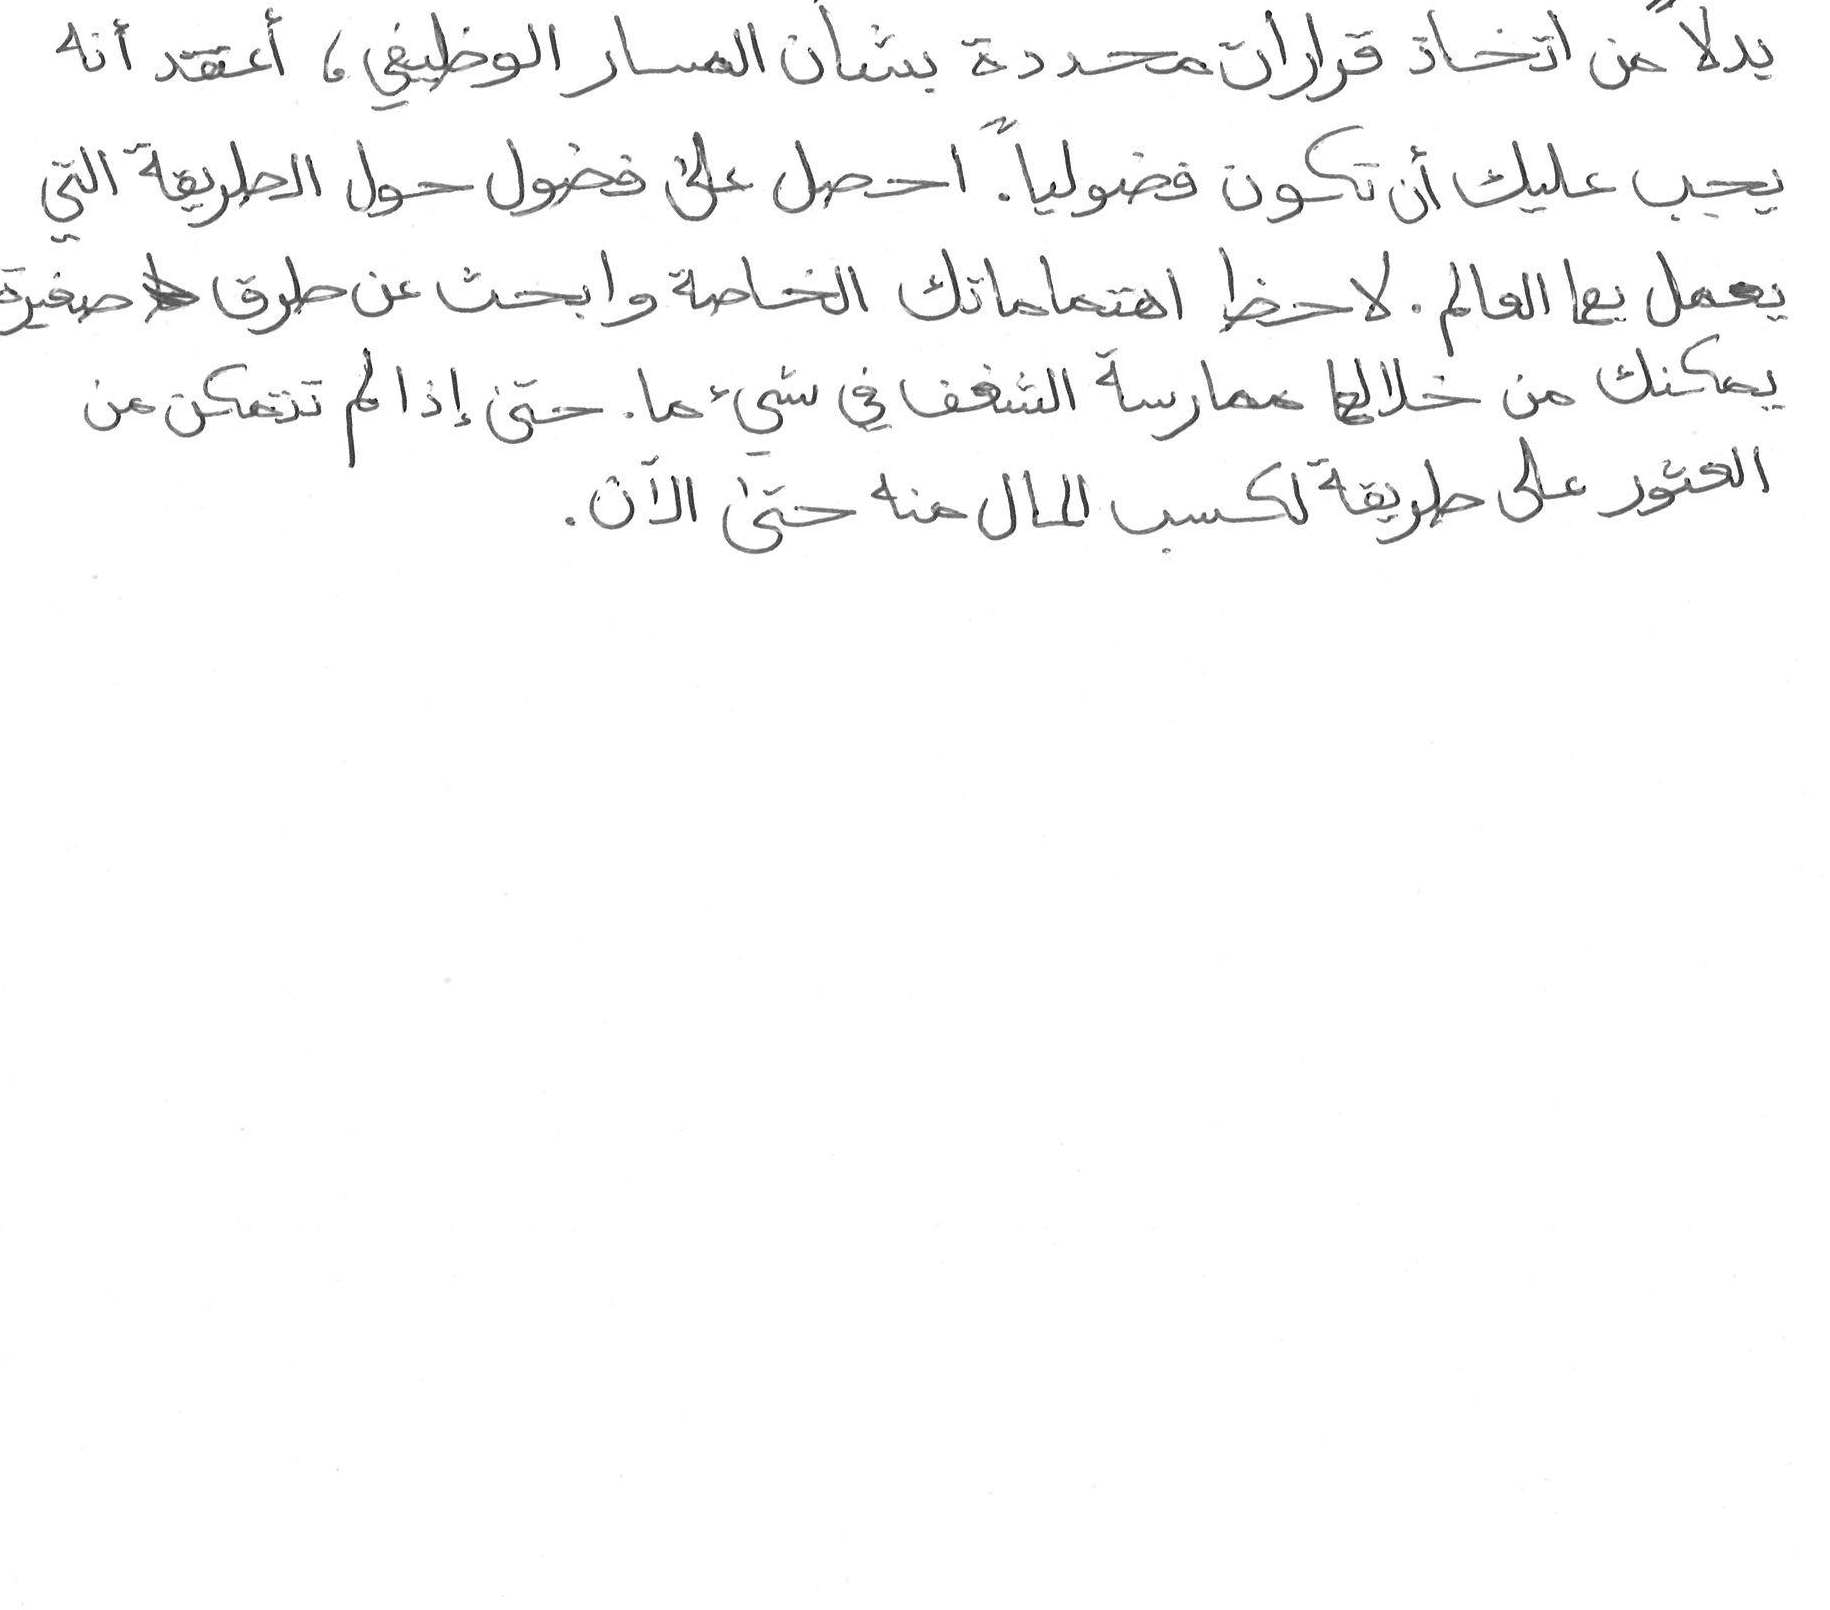 بدلاً من اتخاذ قرارات محددة بشأن المسار الوظيفي، أعتقد أنه
يجب عليك أن تكون فضولياً. احصل على فضول حول الطريقة التي
يعمل بها العالم. لاحظ اهتماماتك الخاصة وابحث عن طرق صغيرة
يمكنك من خلالها ممارسة الشغف في شيء ما. حتى إذا لم تتمكن من
العثور على طريقة لكسب المال منه حتى الآن.